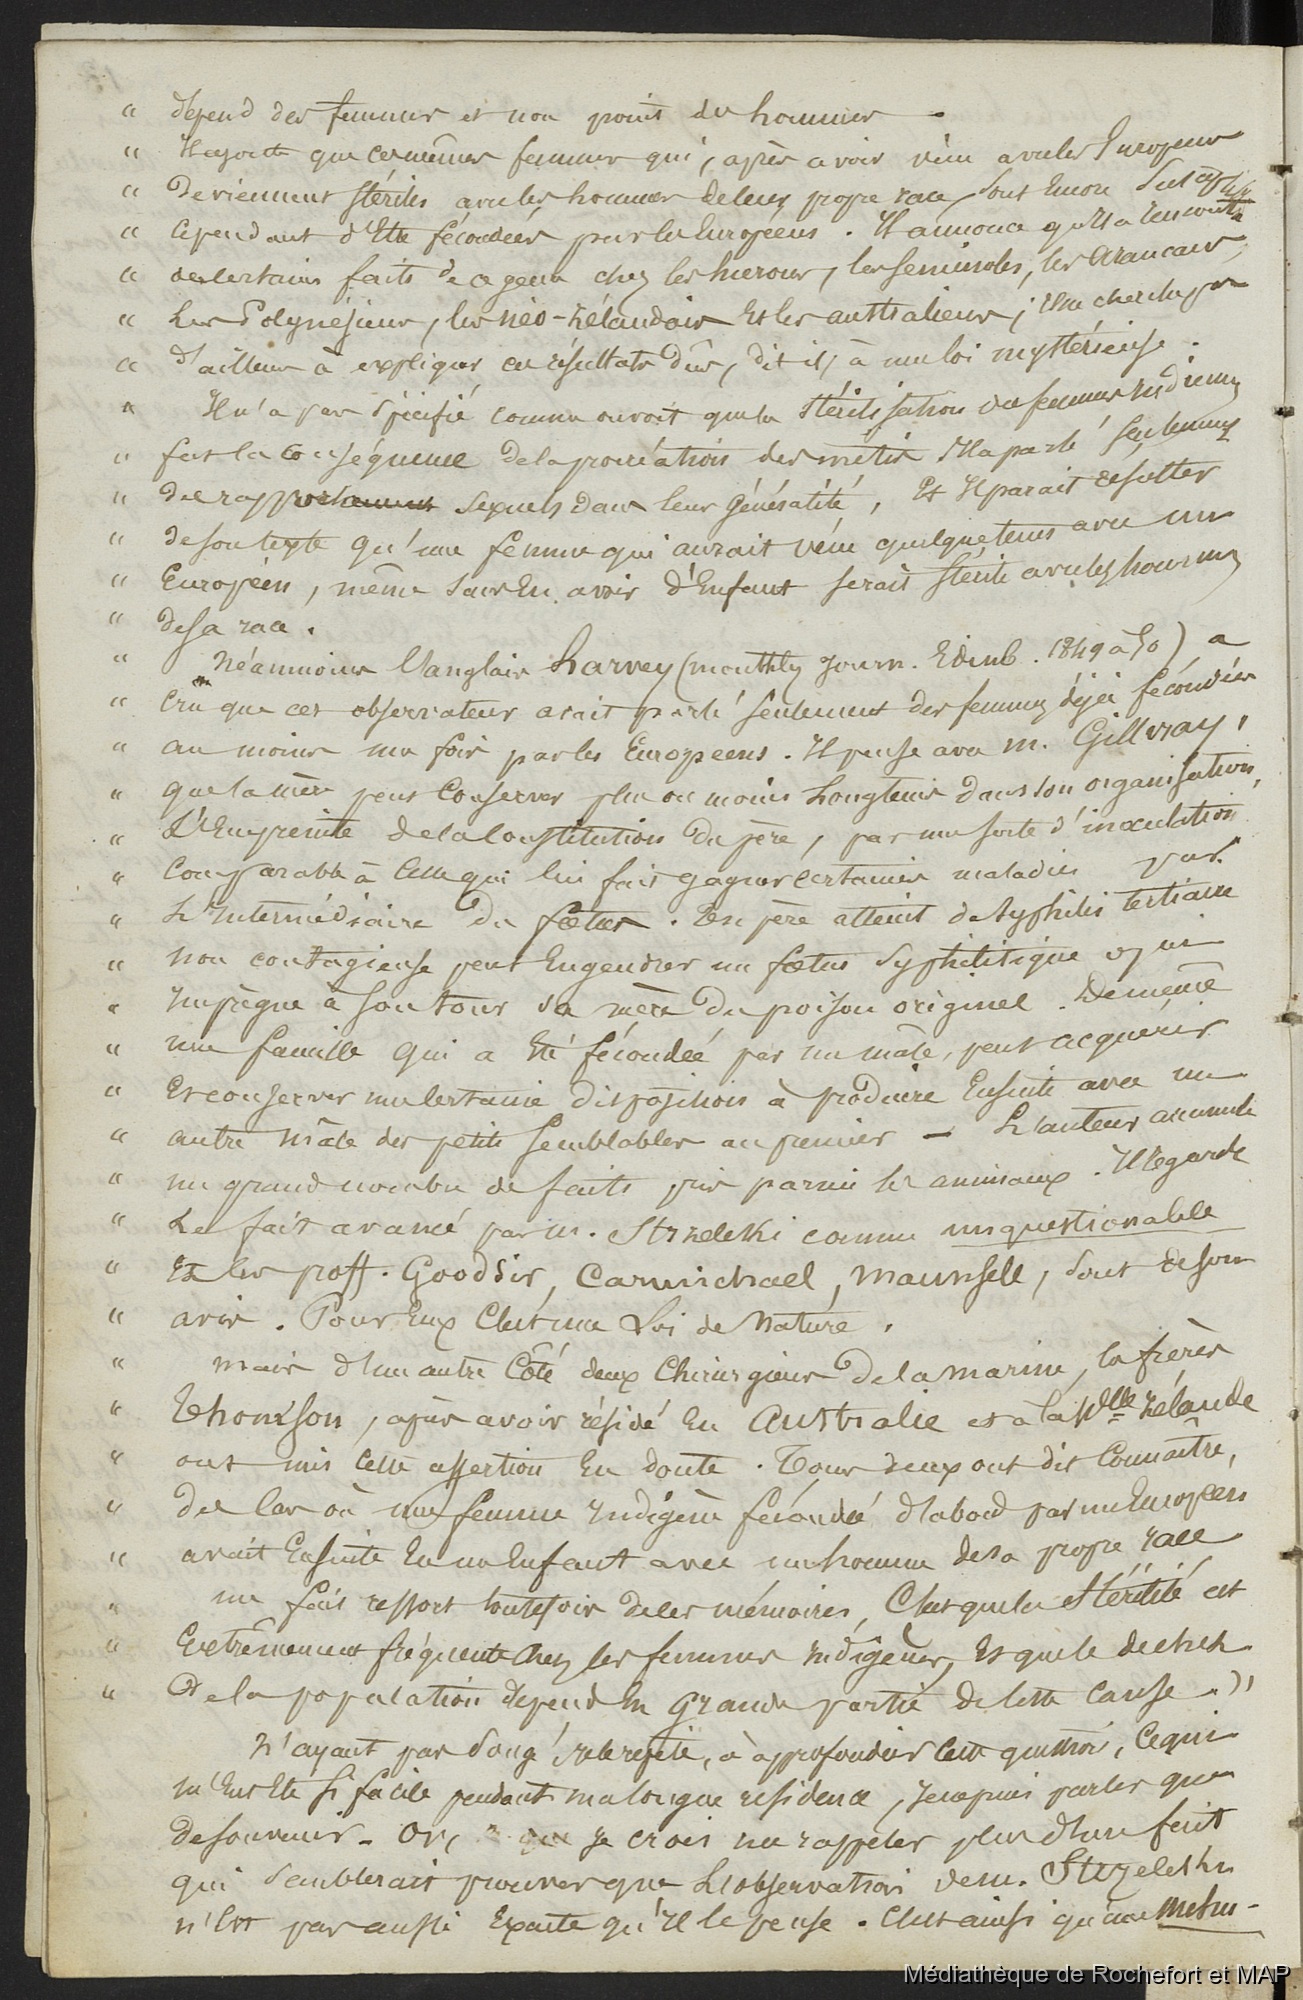 " dépend des femmes et non point des hommes .
" Il ajoute que ces mêmes femmes qui, après avoir vécu avec les Européens
" deviennent stériles avec les hommes de leur propre race, sont encore susceptibles
" cependant d'Etre fécondées par les Européens . Il annonce qu'il a rencontré
" de certains faits de ce genre chez les hurons, les seminoles, les araucans,
" les Polynésiens, les néo-zélandais et les australiens ; Il ne cherche pas
" d'ailleurs à expliquer ce résultat dû, dit-il, à une loi mystérieuse .
" Il n'a pas spécifié comme on voit que la stérilisation des femmes indiennes
" fut la conséquence de la procréation des métis Il a parlé seulement
" des rapprochements sexuels dans leur généralité, Et Il parait résulter
" de son texte qu'une femme qui aurait vécu quelque tems avec un
" Européen, même sans en avoir d'Enfant serait stérile avec les hommes
" de sa race .
" Néanmoins l'anglais harvey (monthly Journ. Edinb. 1849 à 50) a
" cru que cet observateur avait parlé seulement des femmes déjà fécondées
" au moins une fois par les Européens . Il pense avec M. Gillvray,
" que la mère peut Conserver plus ou moins longtems dans son organisation,
" L'Empreinte de la Constitution du père, par une sorte d'inoculation
" Comparable à Celle qui lui fait gagner certaines maladies par
" L'Intermédiaire du fœtus . Un père atteint de syphilis tertiaire
" non contagieuse peut Engendrer un fœtus syphilitique qui
" Imprègne à son tour sa mère du poison originel . De même
" une famille qui a Eté fécondée par un mâle, peut acquérir
" Et conserver une certaine disposition à produire Ensuite avec un
" autre mâle des petits semblables au premier – L'auteur accumule
" un grand nombre de faits pris parmi les animaux . Il regarde
" Le fait avancé par M. Strzeleki comme unquestionable
" Et les proff. Goodsir, Carmichael, Maunsell, sont de son
" avis . Pour Eux C'est une Loi de Nature .
" mais d'un autre Côté deux Chirurgiens de la marine, les frères
" Thomson, après avoir résidé en Australie et à la Nlle zélande
" ont mis cette assertion En doute . Tous deux ont dit Connaître,
" des Cas où une femme Indigène fécondée d'abord par un Européen
" avait Ensuite Eu un Enfant avec un homme de sa propre race
" un fait ressort toutefois de ces mémoires, C'est que la stérilité est
" Extrêmement fréquente chez les femmes indigènes, et que le déchet
" De la population dépend En grande partie de cette Cause . »
N'ayant pas songé, je le répète, à approfondir cette question, ce qui
m'Eut Eté si facile pendant ma longue résidence, Je ne puis parler que
de souvenir – Or, je crois me rappeler plus d'un fait
qui semblerait prouver que L'observation de M. Strzeleski
n'Est pas aussi Exacte qu'Il le pense . C'est ainsi qu'une